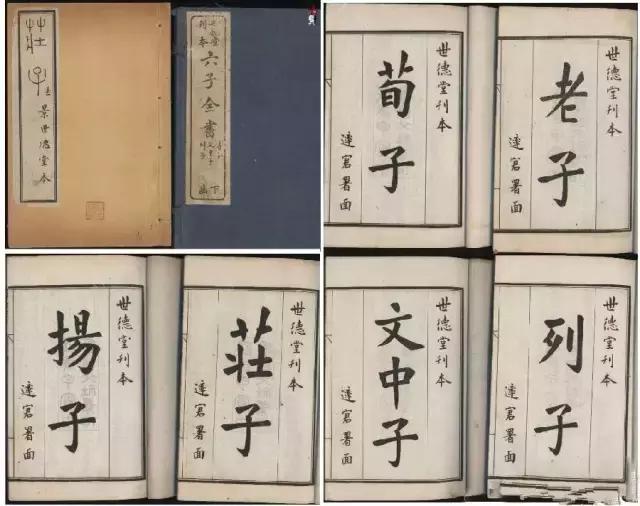 莊子
景世德堂本
世德堂
刊本
六子全書
下函
世德堂刊本
荀子
達窞署面
世德堂刊本
老子
達窞署面
世德堂刊本
揚子
達窞署面
世德堂刊本
莊子
達窞署面
世德堂刊本
文中子
達窞署面
世德堂刊本
列子
達窞署面